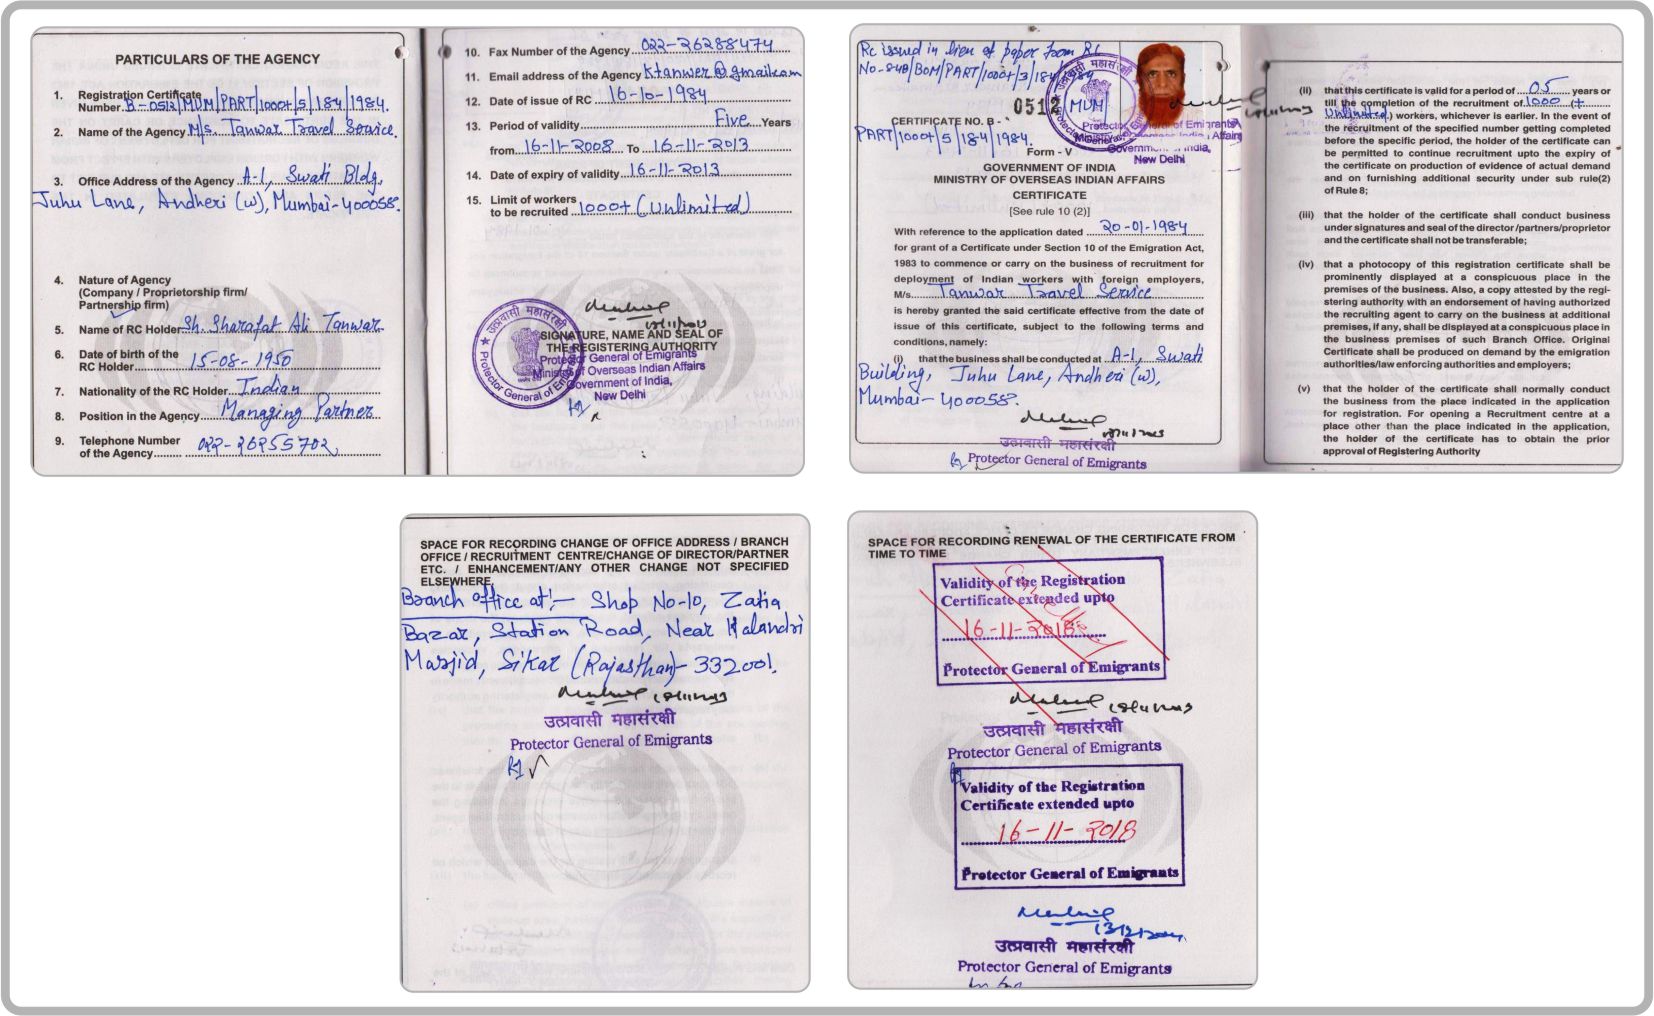 PARTICULARS OF THE AGENCY
1. Registration Certificate
Number B-0512/MUM/PART/1000+/5/184/1984.
2. Name of the Agency M/s. Tanwar Travel Service.
3. Office Address of the Agency A-1, Swati Bldg,
Juhu Lane, Andheri (w), Mumbai-400058.
4. Nature of Agency
(Company / Proprietorship firm/
Partnership firm)
5. Name of RC Holder Sh. Sharafat Ali Tanwar
6. Date of birth of the
RC Holder 15-08-1950
7. Nationality of the RC Holder Indian
8. Position in the Agency Managing Partner
9. Telephone Number
of the Agency 022-26255702
10. Fax Number of the Agency 022-26288474
11. Email address of the Agency Ktanwer@gmail.com
12. Date of issue of RC 16-10-1984
13. Period of validity Five Years
from 16-11-2008 To 16-11-2013
14. Date of expiry of validity 16-11-2013
15. Limit of workers
to be recruited 1000+ (Unlimited)
उत्प्रवासी महासंरक्षी
Protector General of
SIGNATURE, NAME AND SEAL OF
THE REGISTERING AUTHORITY
Protector General of Emigrants
Ministry of Overseas Indian Affairs
Government of India,
New Delhi
Rc issued in lieu of paper from Rc
No-848/BOM/PART/1000+/3/184/84
0512
MUM
CERTIFICATE NO. B -
PART/1000+/5/184/1984.
Protector General of Emigrants
Ministry of Overseas Indian Affairs
Government of India,
New Delhi
Form - V
GOVERNMENT OF INDIA
MINISTRY OF OVERSEAS INDIAN AFFAIRS
CERTIFICATE
[See rule 10 (2)]
With reference to the application dated 20-01-1984
for grant of a Certificate under Section 10 of the Emigration Act,
1983 to commence or carry on the business of recruitment for
deployment of Indian workers with foreign employers,
M/s. Tanwar Travel Service
is hereby granted the said certificate effective from the date of
issue of this certificate, subject to the following terms and
conditions, namely:
(i) that the business shall be conducted at A-1, Swati
Building, Juhu Lane, Andheri (w),
Mumbai-400058.
उत्प्रवासी महासंरक्षी
Protector General of Emigrants
(ii) that this certificate is valid for a period of 05 years or
till the completion of the recruitment of 1000 (+
Unlimited) workers, whichever is earlier. In the event of
the recruitment of the specified number getting completed
before the specific period, the holder of the certificate can
be permitted to continue recruitment upto the expiry of
the certificate on production of evidence of actual demand
and on furnishing additional security under sub rule(2)
of Rule 8;
(iii) that the holder of the certificate shall conduct business
under signatures and seal of the director /partners/proprietor
and the certificate shall not be transferable;
(iv) that a photocopy of this registration certificate shall be
prominently displayed at a conspicuous place in the
premises of the business. Also, a copy attested by the regi-
stering authority with an endorsement of having authorized
the recruiting agent to carry on the business at additional
premises, if any, shall be displayed at a conspicuous place in
the business premises of such Branch Office. Original
Certificate shall be produced on demand by the emigration
authorities/law enforcing authorities and employers;
(v) that the holder of the certificate shall normally conduct
the business from the place indicated in the application
for registration. For opening a Recruitment centre at a
place other than the place indicated in the application,
the holder of the certificate has to obtain the prior
approval of Registering Authority
SPACE FOR RECORDING CHANGE OF OFFICE ADDRESS / BRANCH
OFFICE / RECRUITMENT CENTRE/CHANGE OF DIRECTOR/PARTNER
ETC. / ENHANCEMENT/ANY OTHER CHANGE NOT SPECIFIED
ELSEWHERE.
Branch office at:- Shop No-10, Zatia
Bazar, Station Road, Near Kalandri
Masjid, Sikar (Rajasthan)-332001.
उत्प्रवासी महासंरक्षी
Protector General of Emigrants
SPACE FOR RECORDING RENEWAL OF THE CERTIFICATE FROM
TIME TO TIME
Validity of the Registration
Certificate extended upto
16-11-2018
Protector General of Emigrants
उत्प्रवासी महासंरक्षी
Protector General of Emigrants
Validity of the Registration
Certificate extended upto
16-11-2018
Protector General of Emigrants
उत्प्रवासी महासंरक्षी
Protector General of Emigrants